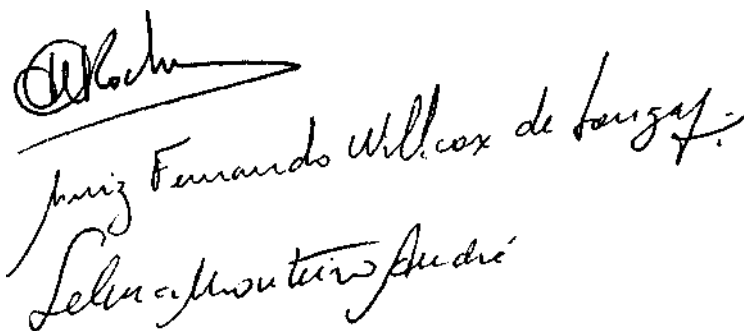 Rocha
Luiz Fernando Willcox de Souza
Selma Monteiro André